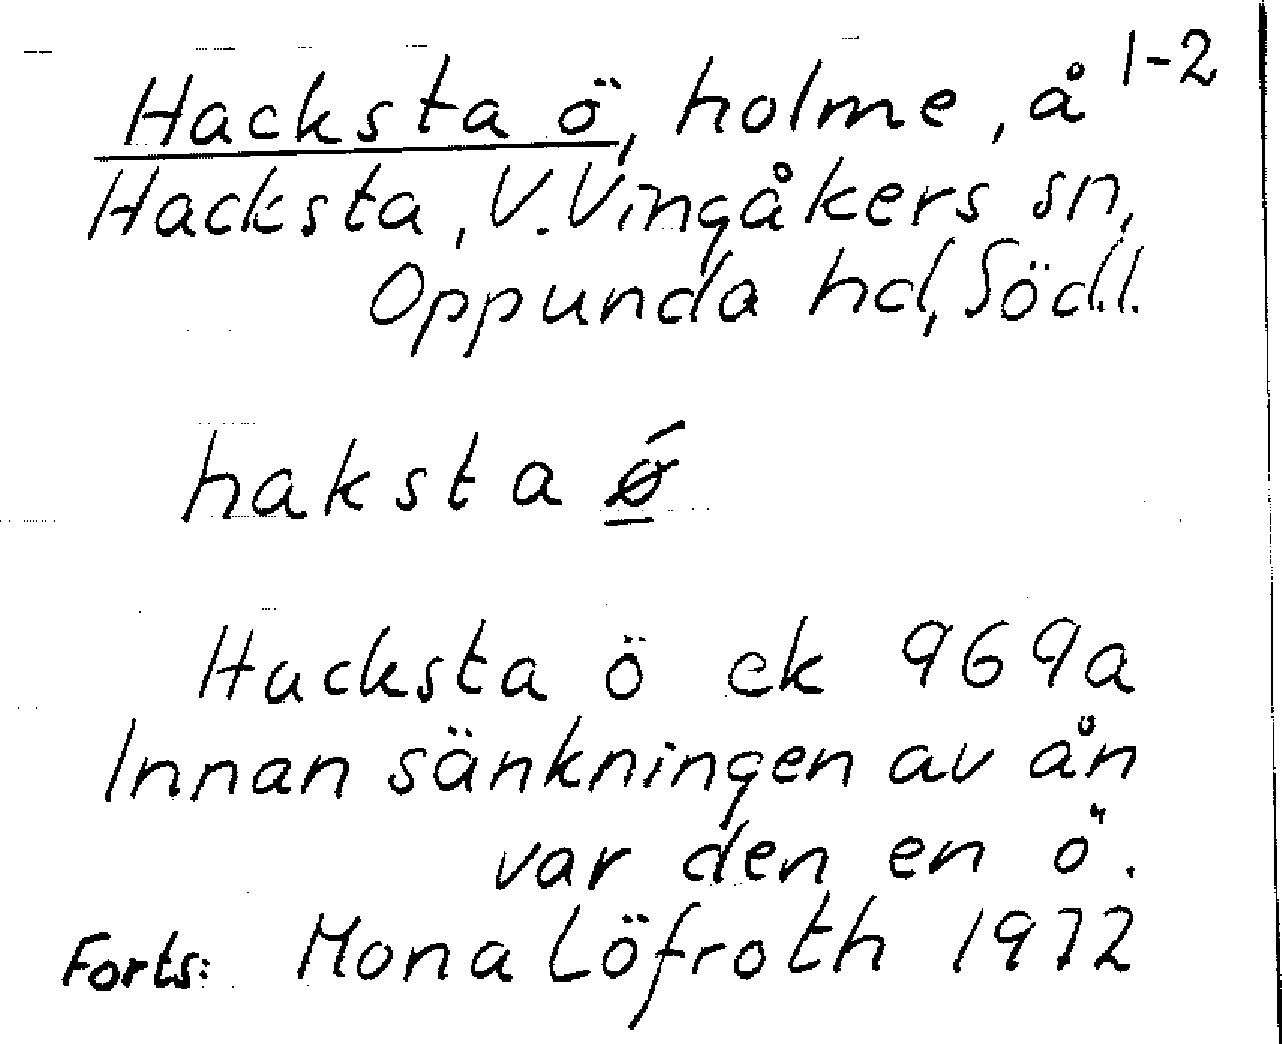 Hacksta ö, holme, å 1-2
Hacksta, V. Vingåkers sn,
Oppunda hd, Södl.
haksta ǿ
Hacksta ö ek 969a
Innan sänkningen av ån
var den en ö.
Forts: Mona Löfroth 1972